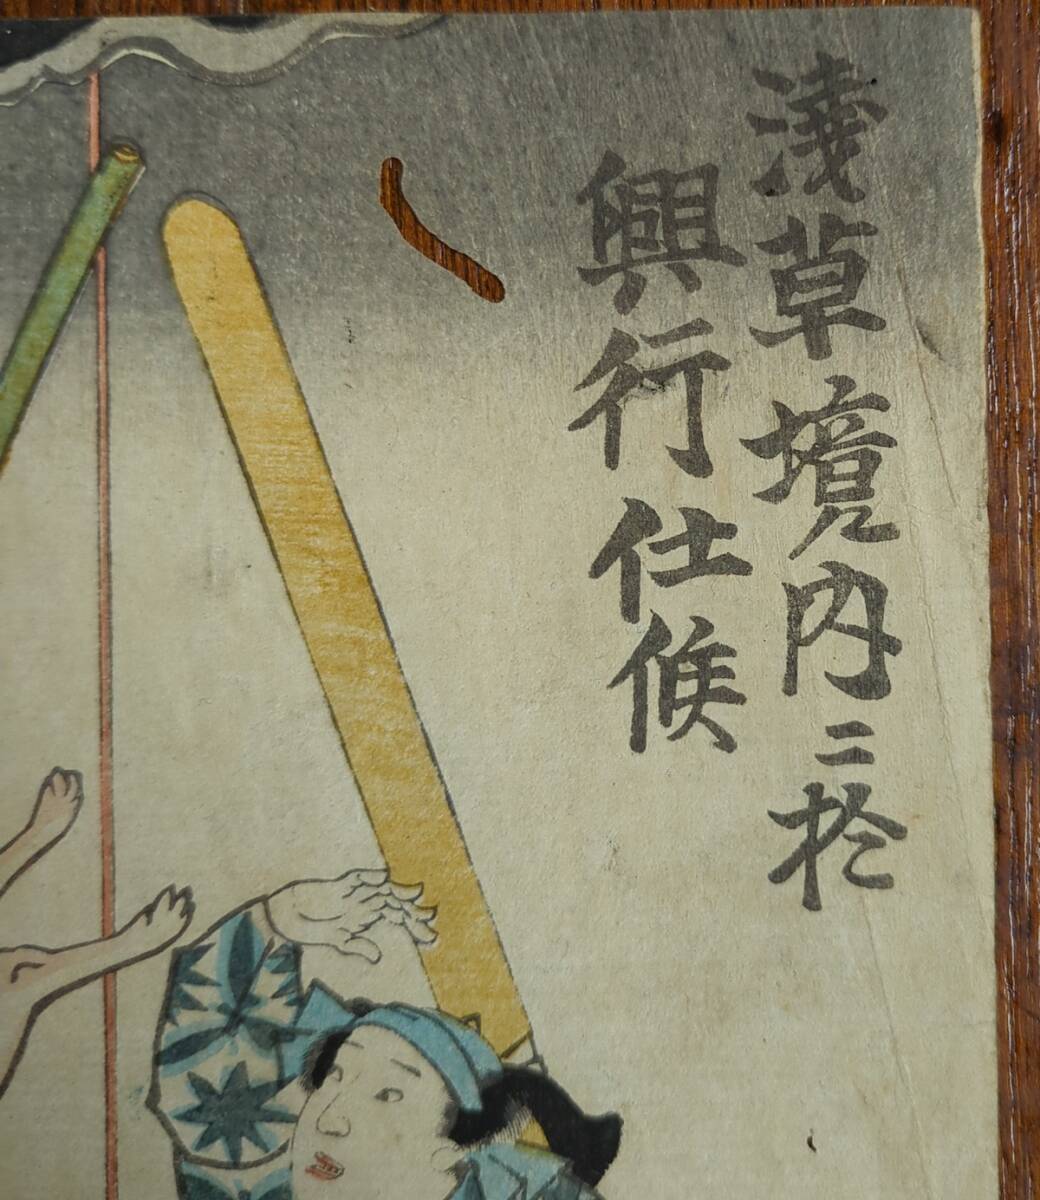 淺草境内ニ於
興行仕候